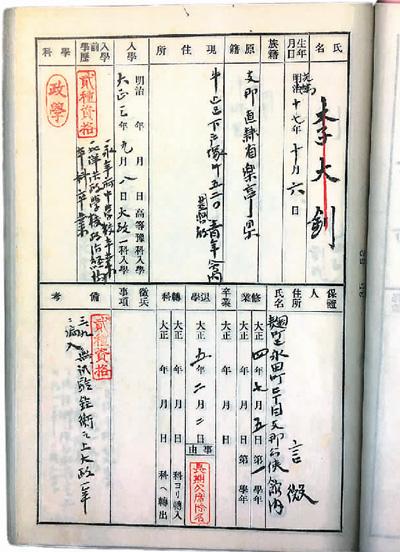 氏名
李大釗
生年月日
明治十七年十月六日
族籍
原籍
支那直隸省樂亭県
現住所
牛込区下戸塚町五二〇青年会内
入學
明治 年 月 日高等豫科入學
大正三年九月八日大政一科入學
入學前學歴
貳種資格
永平府中學校卒業
北洋法政學校政治経済本科卒業
學科
政學
保證人
氏名
言微
住所
麴町区永田町二丁目支那公使館内
修業
大正四年七月五日第一學年
大正 年 月 日第 學年
卒業
大正 年 月 日
退學
大正五年二月二日
事由
長期欠席除名
轉科
大正 年 月 日 科ヨリ轉入
大正 年 月 日 科ヘ轉出
徴兵事項
備考
貳種資格